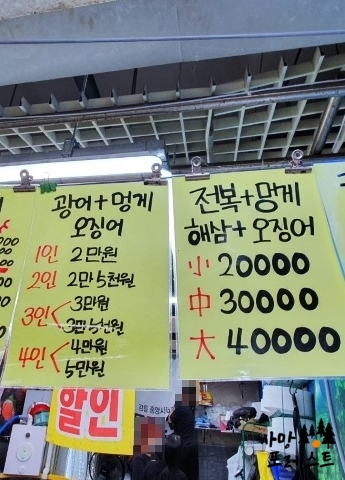 광어+멍게
오징어
1인 2만원
2인 2만5천원
3인 < 3만원
3만5천원
4인 < 4만원
5만원
전복+망게
해삼+오징어
小 20000
中 30000
大 40000
할인